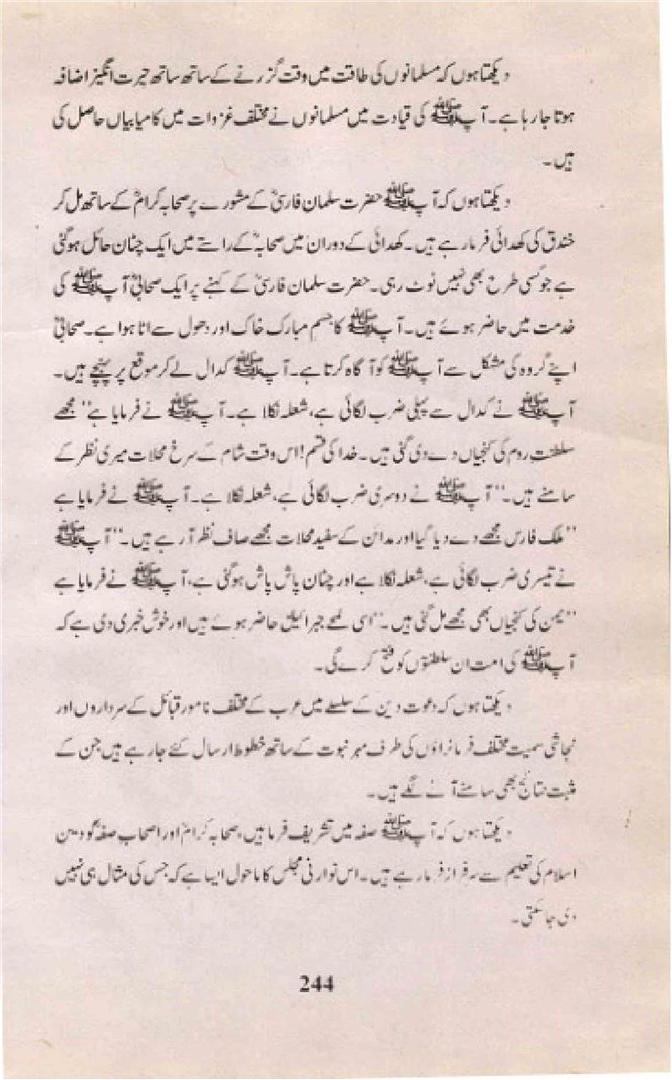 دیکھتا ہوں کہ مسلمانوں کی طاقت میں وقت گزرنے کے ساتھ ساتھ حیرت انگیز اضافہ
ہوتا جا رہا ہے۔ آپ ﷺ کی قیادت میں مسلمانوں نے مختلف غزوات میں کامیابیاں حاصل کی
ہیں۔
دیکھتا ہوں کہ آپ ﷺ حضرت سلمان فارسیؓ کے مشورے پر صحابہ کرامؓ کے ساتھ مل کر
خندق کی کھدائی فرما رہے ہیں۔ کھدائی کے دوران میں صحابہؓ کے راستے میں ایک چٹان حائل ہوگئی
ہے جو کسی طرح بھی نہیں ٹوٹ رہی۔ حضرت سلمان فارسیؓ کے کہنے پر ایک صحابیؓ آپ ﷺ کی
خدمت میں حاضر ہوئے ہیں۔ آپ ﷺ کا جسم مبارک خاک اور دھول سے اٹا ہوا ہے۔ صحابیؓ
اپنے گروہ کی مشکل سے آپ ﷺ کو آگاہ کرتا ہے۔ آپ ﷺ کدال لے کر موقع پر پہنچے ہیں۔
آپ ﷺ نے کدال سے پہلی ضرب لگائی ہے، شعلہ نکلا ہے۔ آپ ﷺ نے فرمایا ہے ”مجھے
سلطنتِ روم کی کنجیاں دے دی گئی ہیں۔ خدا کی قسم! اس وقت شام کے سرخ محلات میری نظر کے
سامنے ہیں۔“ آپ ﷺ نے دوسری ضرب لگائی ہے، شعلہ نکلا ہے۔ آپ ﷺ نے فرمایا ہے
”ملک فارس مجھے دے دیا گیا اور مدائن کے سفید محلات مجھے صاف نظر آ رہے ہیں۔“ آپ ﷺ
نے تیسری ضرب لگائی ہے، شعلہ نکلا ہے اور چٹان پاش پاش ہوگئی ہے، آپ ﷺ نے فرمایا ہے
”یمن کی کنجیاں بھی مجھے مل گئی ہیں۔“ اسی لمحے جبرائیلؑ حاضر ہوئے ہیں اور خوش خبری دی ہے کہ
آپ ﷺ کی امت ان سلطنتوں کو فتح کرے گی۔
دیکھتا ہوں کہ دعوت دین کے سلسلے میں عرب کے مختلف نامور قبائل کے سرداروں اور
نجاشی سمیت مختلف فرمانراؤں کی طرف مہر نبوت کے ساتھ خطوط ارسال کئے جا رہے ہیں جن کے
مثبت نتائج بھی سامنے آنے لگے ہیں۔
دیکھتا ہوں کہ آپ ﷺ صفہ میں تشریف فرما ہیں، صحابہ کرامؓ اور اصحاب صفہؓ کو دین
اسلام کی تعلیم سے سرفراز فرما رہے ہیں۔ اس نوارنی مجلس کا ماحول ایسا ہے کہ جس کی مثال ہی نہیں
دی جا سکتی۔
244